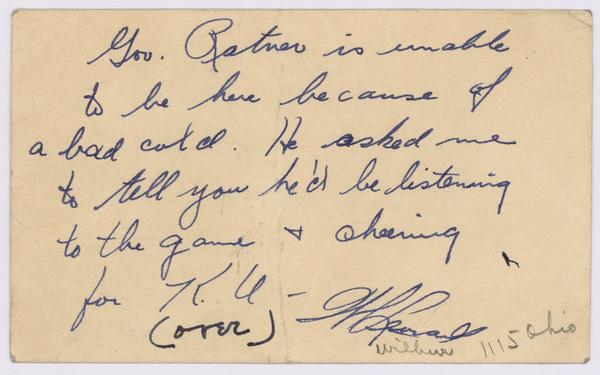 Gov. Ratner is unable
to be here because of
a bad cold. He asked me
to tell you he'd be listening
to the game + cheering
for K.U -
(over)
Wilbur 1115 Ohio